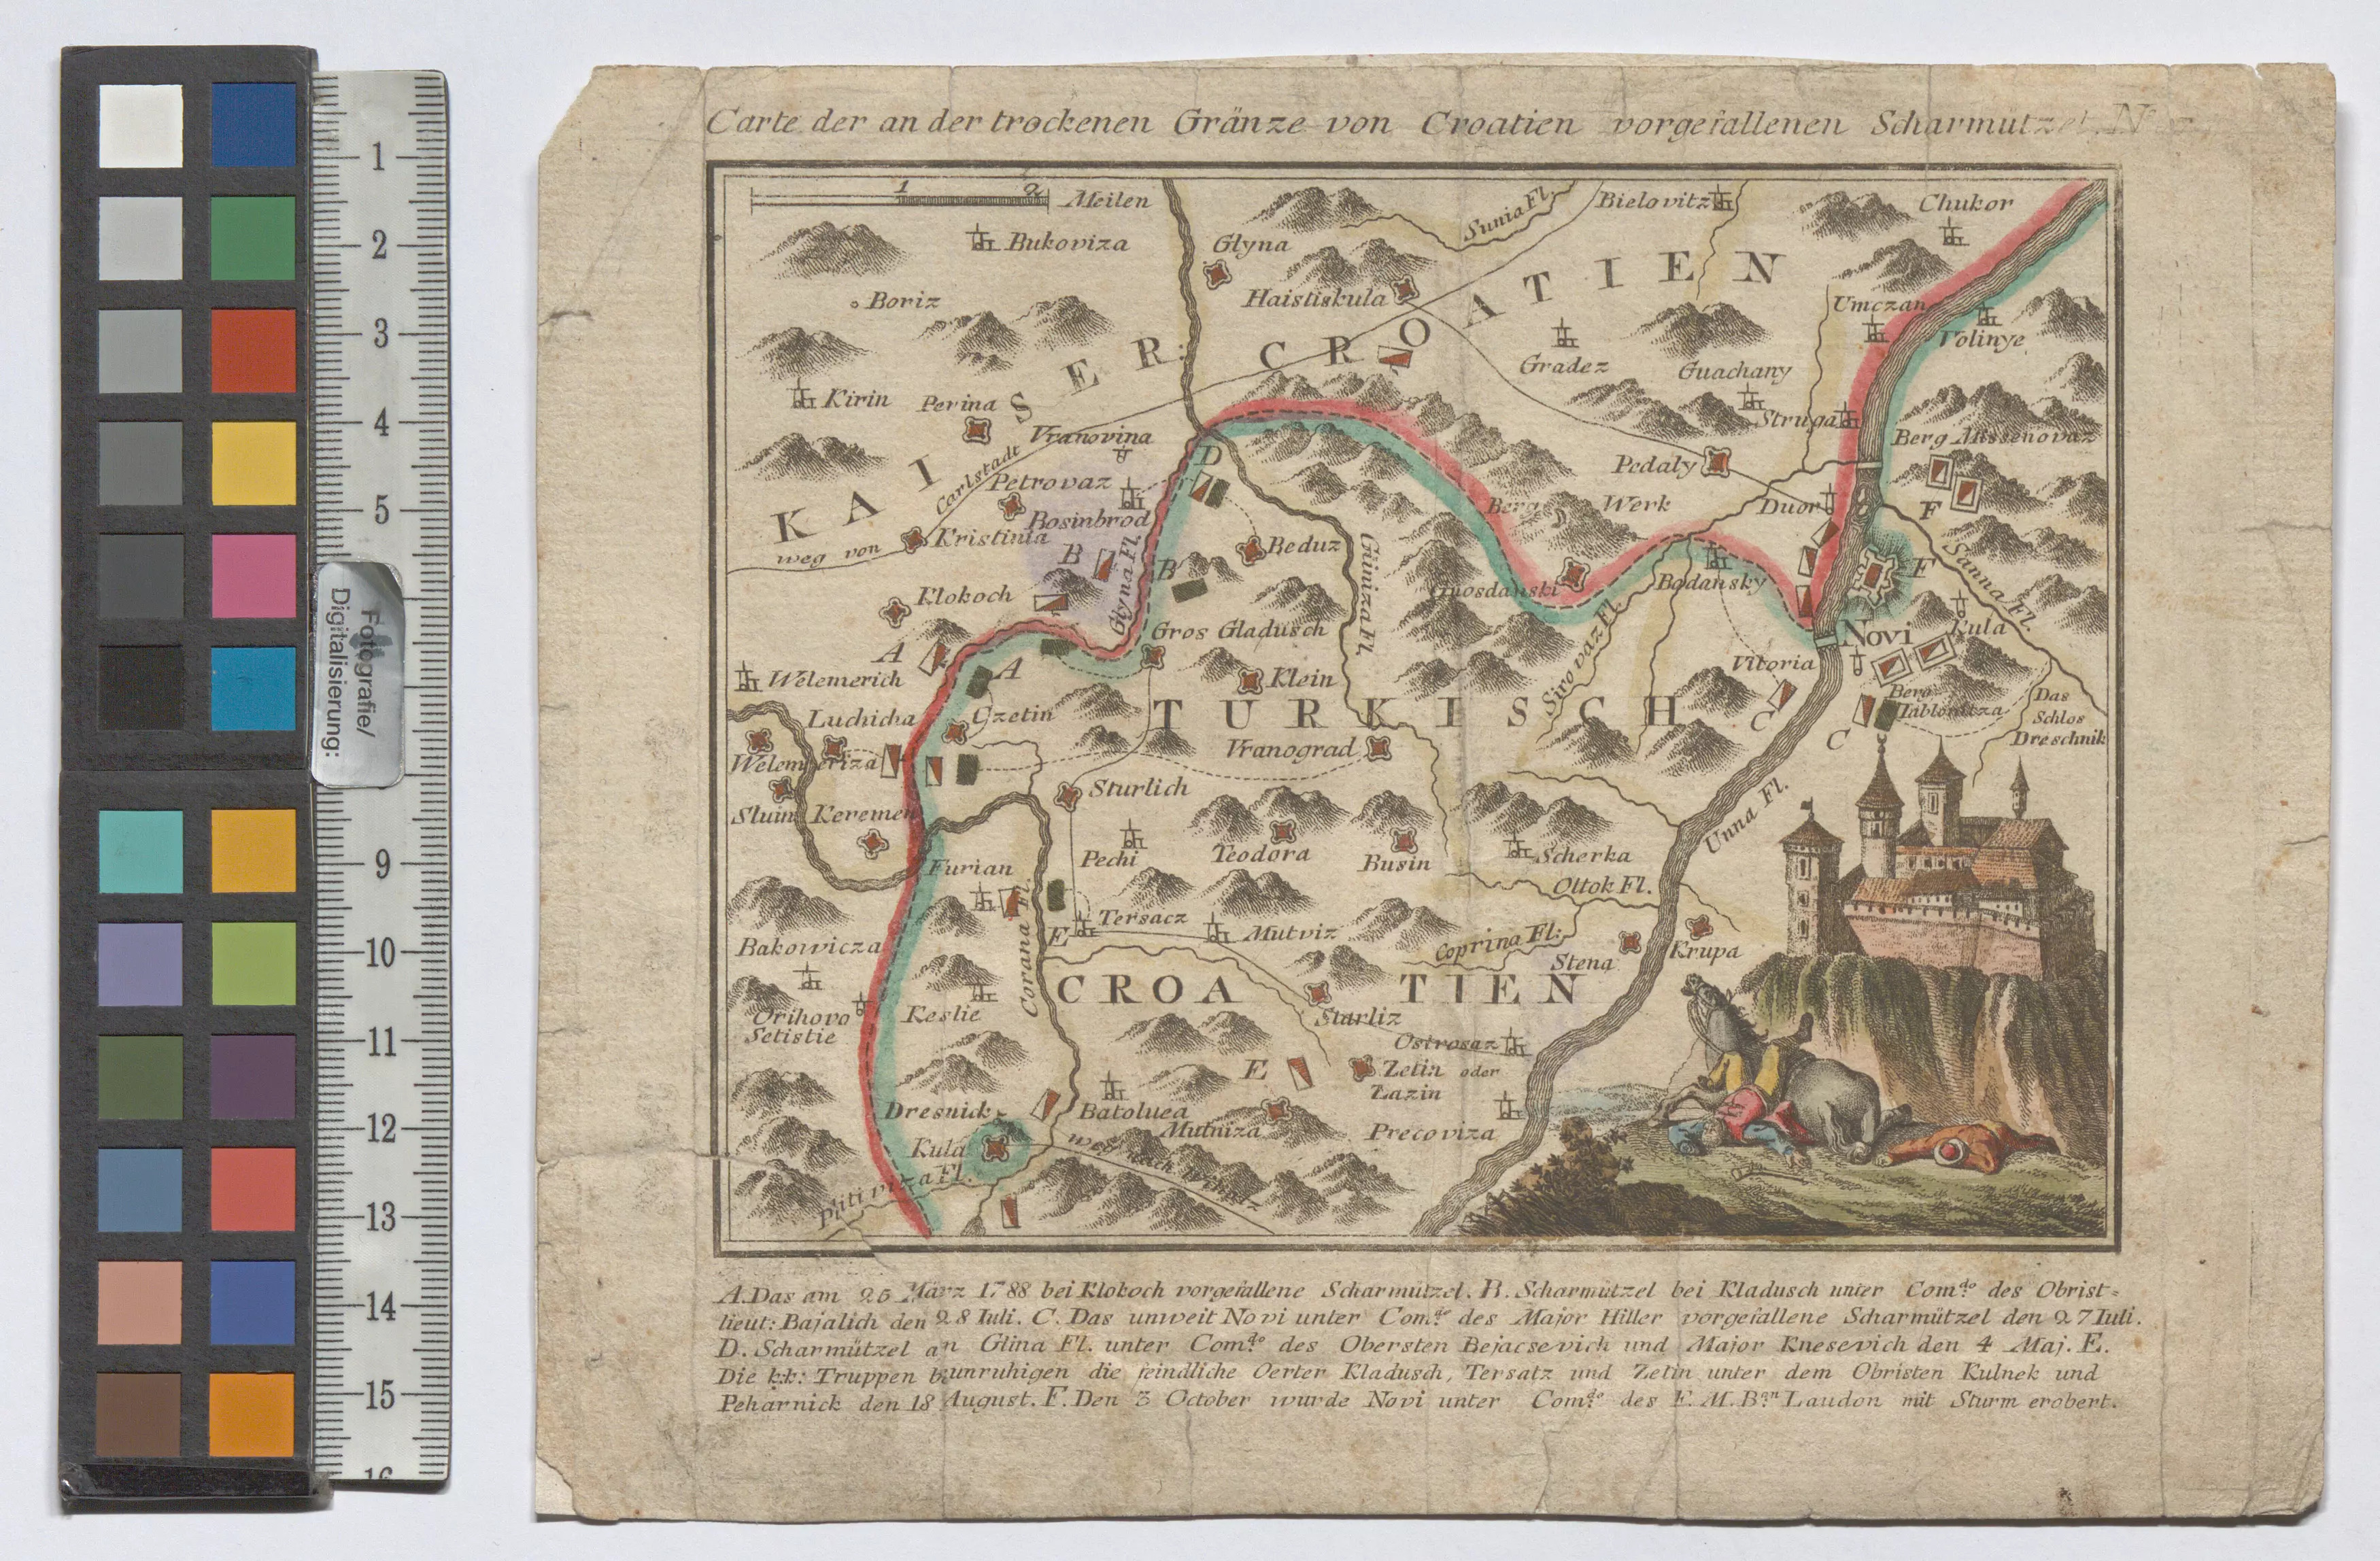 Carte der an der trockenen Gränze von Croatien vorgefallenen Scharmützel. N
1 2 Meilen
Bukoviza
Boriz
Glyna
Haistiskula
Sunia Fl.
Bielovitz
Chukor
Umczan
Volinye
Gradez
Guachany
Struga
Berg Missenovaz
KAISER: CROATIEN
Kirin
Perina
Vranovina
weg von Carlstadt
Petrovaz
Bosinbrod
Kristinia
Klokoch
B
Glyna Fl.
B
D
Beduz
Glinniza Fl.
Pedaly
Berg Werk
Duor
F
Sanna Fl.
Gnosdanski
Bodansky
F
Novi
Kula
A
A
Gros Gladusch
Klein
Welemerich
Luchicha
Czetin
Sirovaz Fl.
Vitoria
C
C
Berg Tablonitza
Das
Schlos
Dreschnik
TURKISCH
Vranograd
Welemeriza
Sluin
Keremen
Sturlich
Unna Fl.
Furian
Pechi
Teodora
Busin
Scherka
Ottok Fl.
Bakowicza
Corana Fl.
E
Tersacz
Mutviz
Coprina Fl:
Stena
Krupa
CROATIEN
Orihovo
Setistie
Keslie
Starliz
Ostrosaz
E
Zetin oder
Zazin
Dresnick
Batoluea
Mutniza
Precoviza
Kula
weg nach Wihatz
Plitiviza Fl.
A. Das am 25 März 1788 bei Klokoch vorgefallene Scharmützel. B. Scharmützel bei Kladusch unter Com.do des Obrist=
lieut: Bajalich den 28 Iuli. C. Das unweit Novi unter Com.do des Major Hiller vorgefallene Scharmützel den 27 Iuli.
D. Scharmützel an Glina Fl. unter Com.do des Obersten Bejacsevich und Major Knesevich den 4 Maj. E.
Die k.k: Truppen bunruhigen die feindliche Oerter Kladusch, Tersatz und Zetin unter dem Obristen Kulnek und
Peharnick den 18 August. F. Den 3 October wurde Novi unter Com.do des F. M. B.an Laudon mit Sturm erobert.
1
2
3
4
5
Fotografie/
Digitalisierung:
9
10
11
12
13
14
15
16